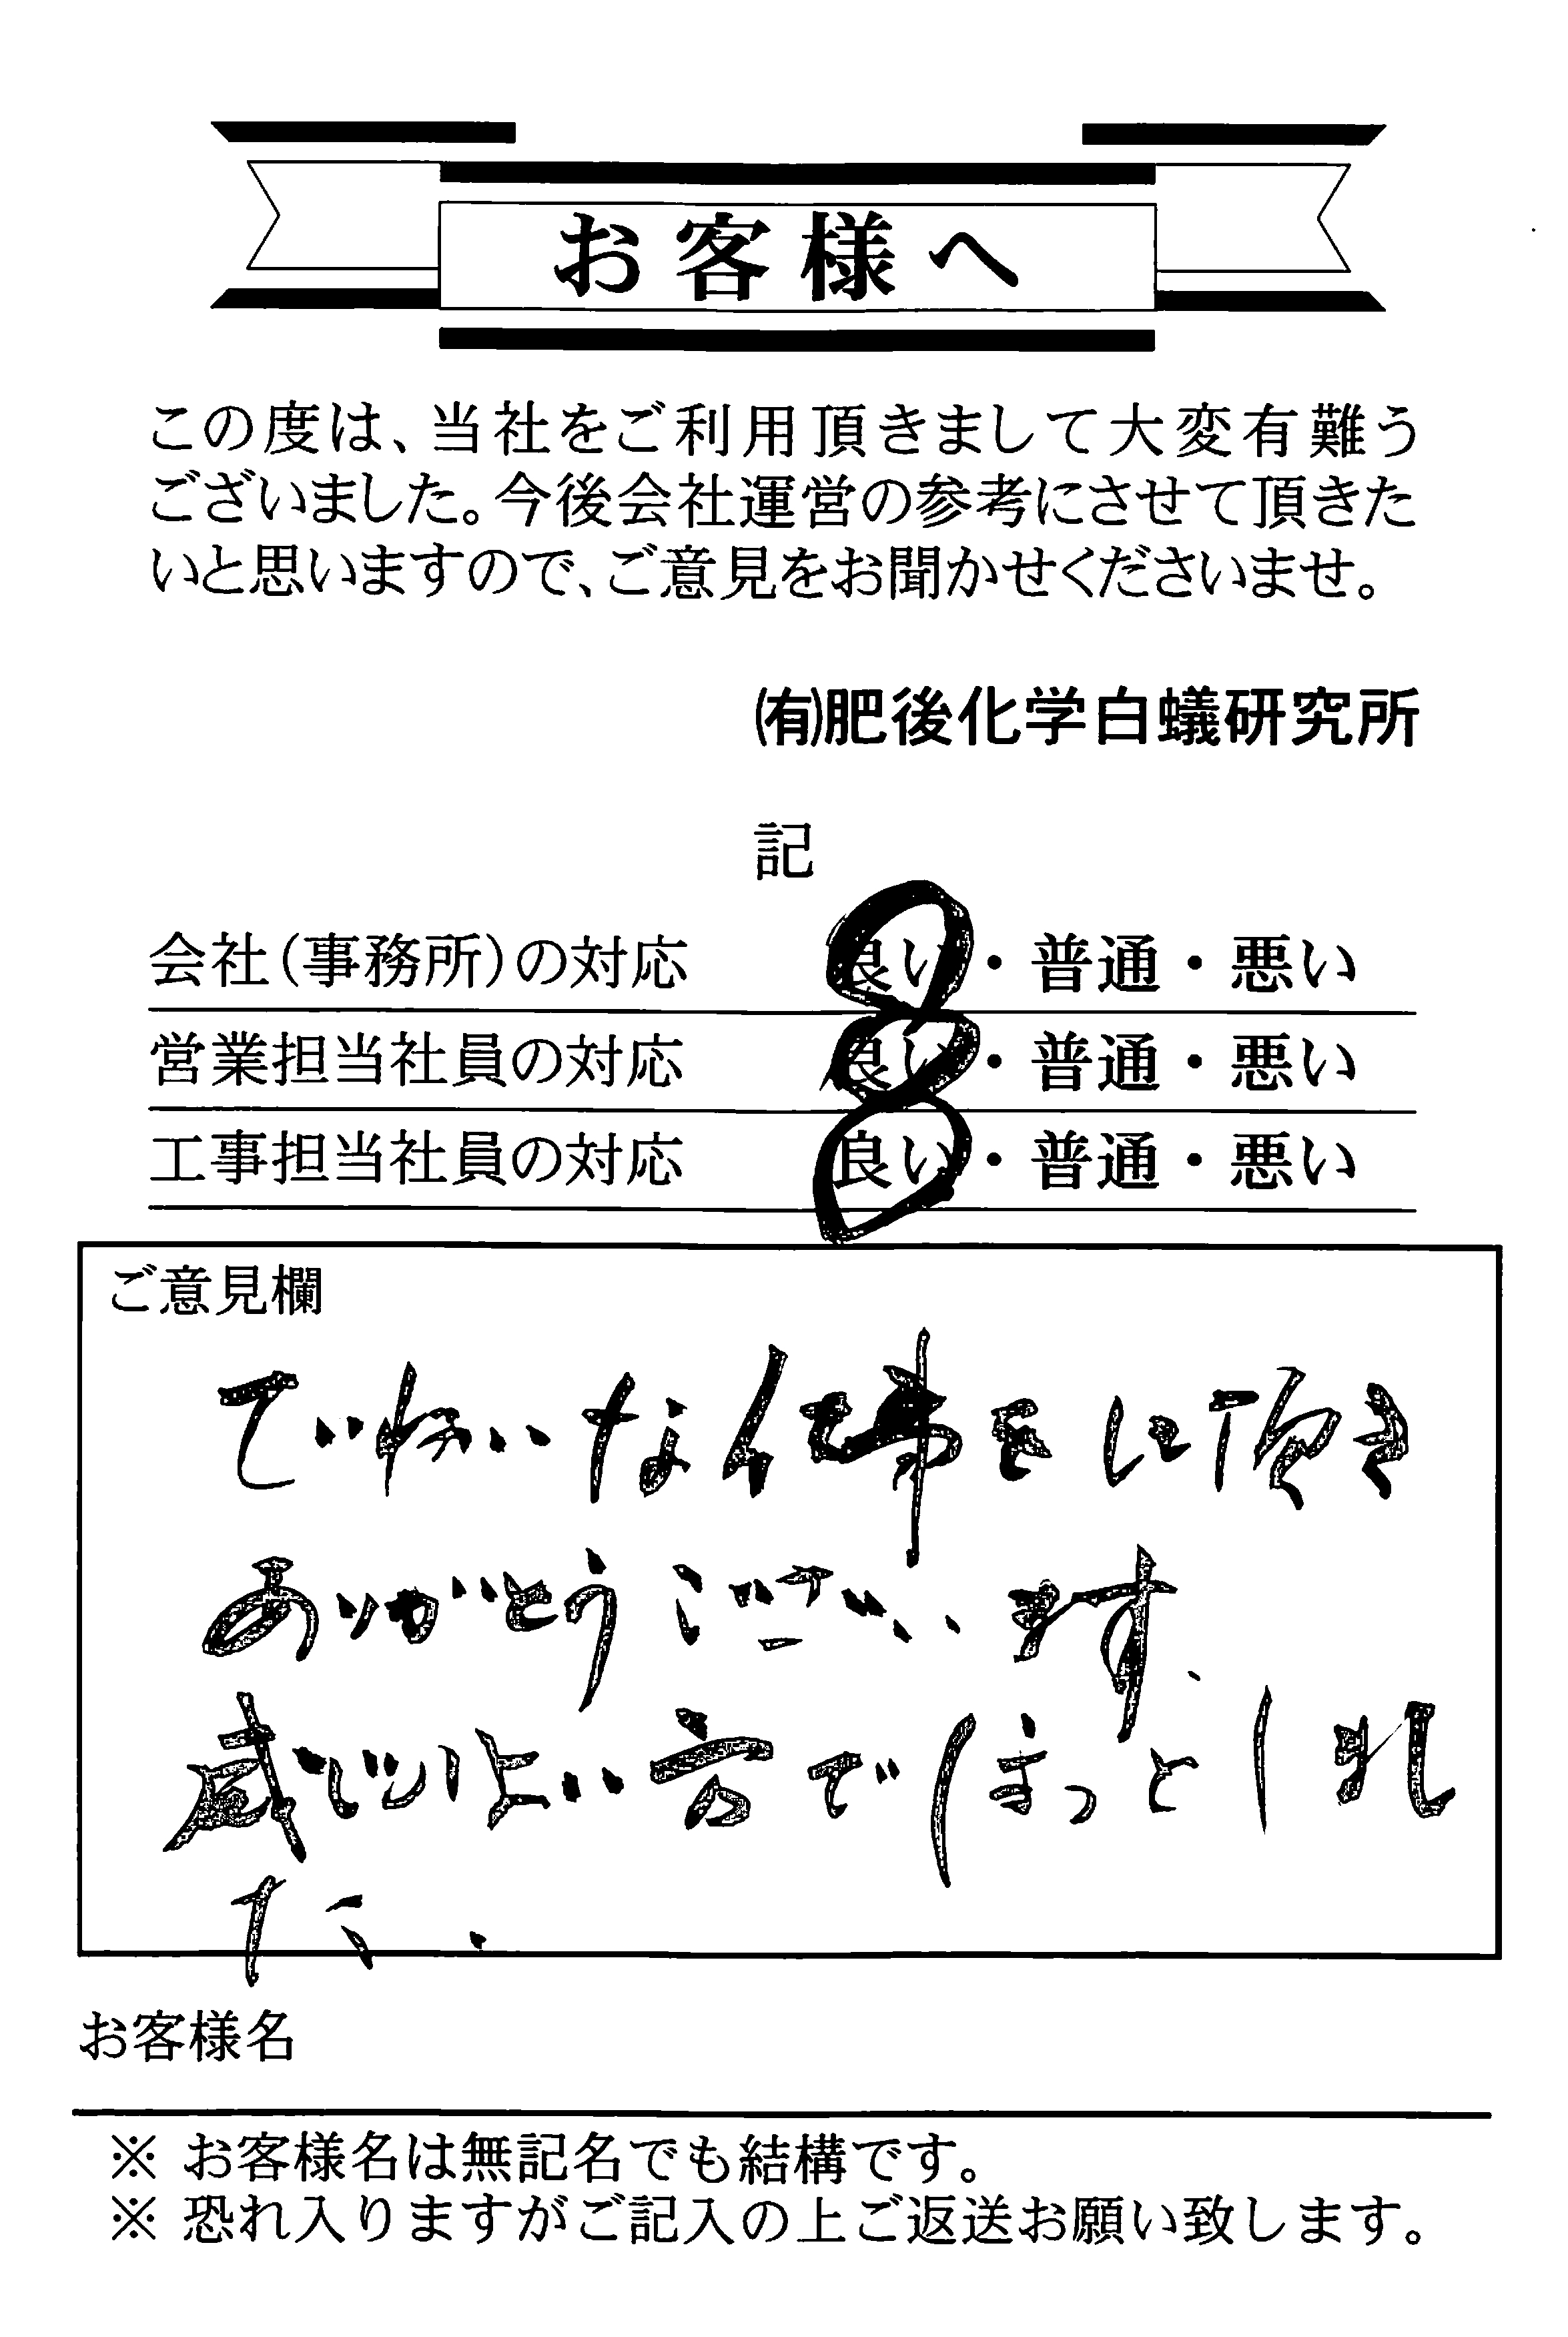 お客様へ
この度は、当社をご利用頂きまして大変有難う
ございました。今後会社運営の参考にさせて頂きた
いと思いますので、ご意見をお聞かせくださいませ。
㈲肥後化学白蟻研究所
記
会社(事務所)の対応 良い・普通・悪い
営業担当社員の対応 良い・普通・悪い
工事担当社員の対応 良い・普通・悪い
ご意見欄
ていねいな仕事をして頂き
ありがとうございます、
感じしよい方でほっとしまし
た.
お客様名
※ お客様名は無記名でも結構です。
※ 恐れ入りますがご記入の上ご返送お願い致します。